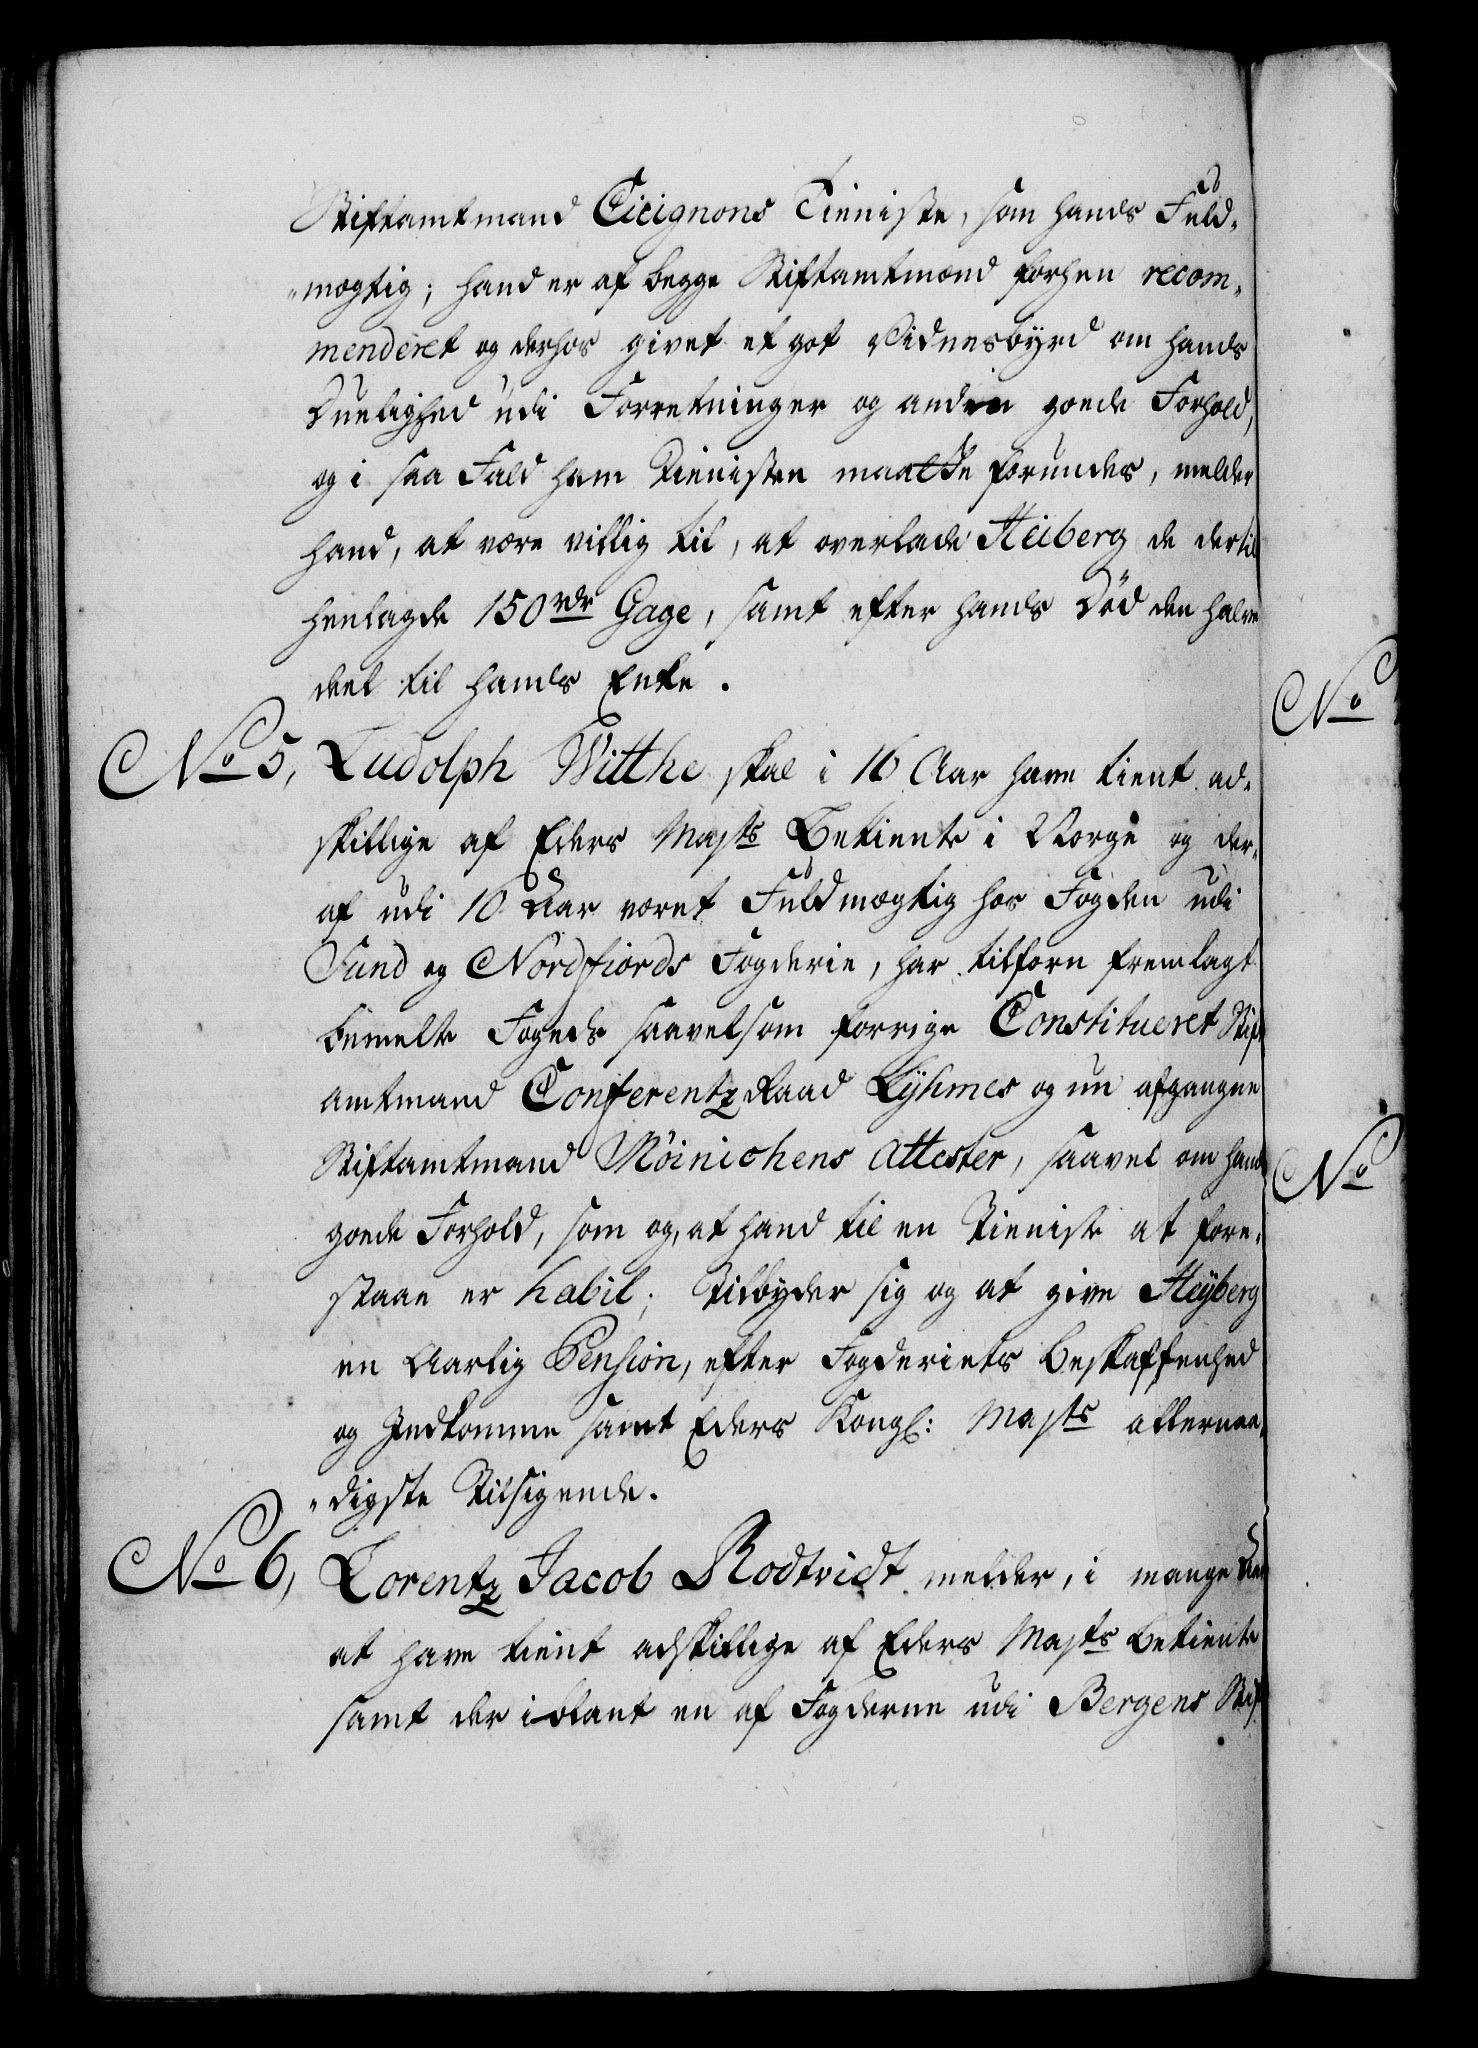 Stiftamtmand Cicignons Tieniste, som hands Fuld-
mægtig; hand er af begge Stiftamtmænd forhen recom-
menderet og derhos givet et got Vidnesbyrd om hands
Duelighed udi Forretninger og anden goede Forhold,
og i saa Fald ham Tienisten maatte forundes, melder
hand, at være villig til, at overlade Heiberg de dertil
henlagde 150 rdr Gage, samt efter hands Død den halve
deel til hands Enke.
No 5, Ludolph Witthe skal i 16 Aar have tient ad-
skillige af Eders Mayts Betiente i Norge og der-
af udi 10 Aar været Fuldmægtig hos Fogden udi
Sund og Nordfiords Fogderie, har tilforn fremlagt
bemelte Fogeds saavelsom forrige Constitueret Stift
amtmand ConferentzRaad Lyhmes og nu afgangne
Stiftamtmand Möinichens Attester, saavel om hands
goede Forhold, som og, at hand til en Tieniste at fore-
staae er habil; Tilbyder sig og at give Heÿberg
en Aarlig Pension, efter Fogderiets Beskaffenhed
og Indkomme samt Eders Kongl: Mayts allernaa-
digste Tilsigende.
No 6, Lorentz Jacob Rodtvidt melder, i mange Aar
at have tient adskillige af Eders Mayts Betiente
samt der iblant en af Fogderne udi Bergens Stift
No
No